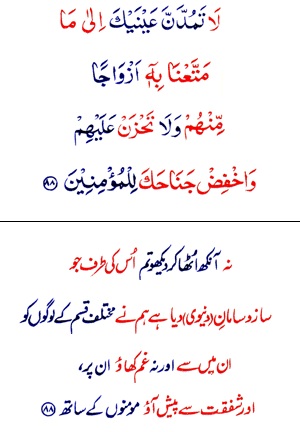 لَا تَمُدَّنَّ عَيْنَيْكَ اِلٰى مَا
مَتَّعْنَا بِهٖٓ اَزْوَاجًا
مِّنْهُمْ وَلَا تَحْزَنْ عَلَيْهِمْ
وَاخْفِضْ جَنَاحَكَ لِلْمُؤْمِنِيْنَ ۝۸۸
نہ آنکھ اُٹھا کر دیکھو تم اُس کی طرف جو
ساز و سامانِ (دنیوی) دیا ہے ہم نے مختلف قسم کے لوگوں کو
ان میں سے اور نہ غم کھاؤ ان پر،
اور شفقت سے پیش آؤ مومنوں کے ساتھ ۝۸۸